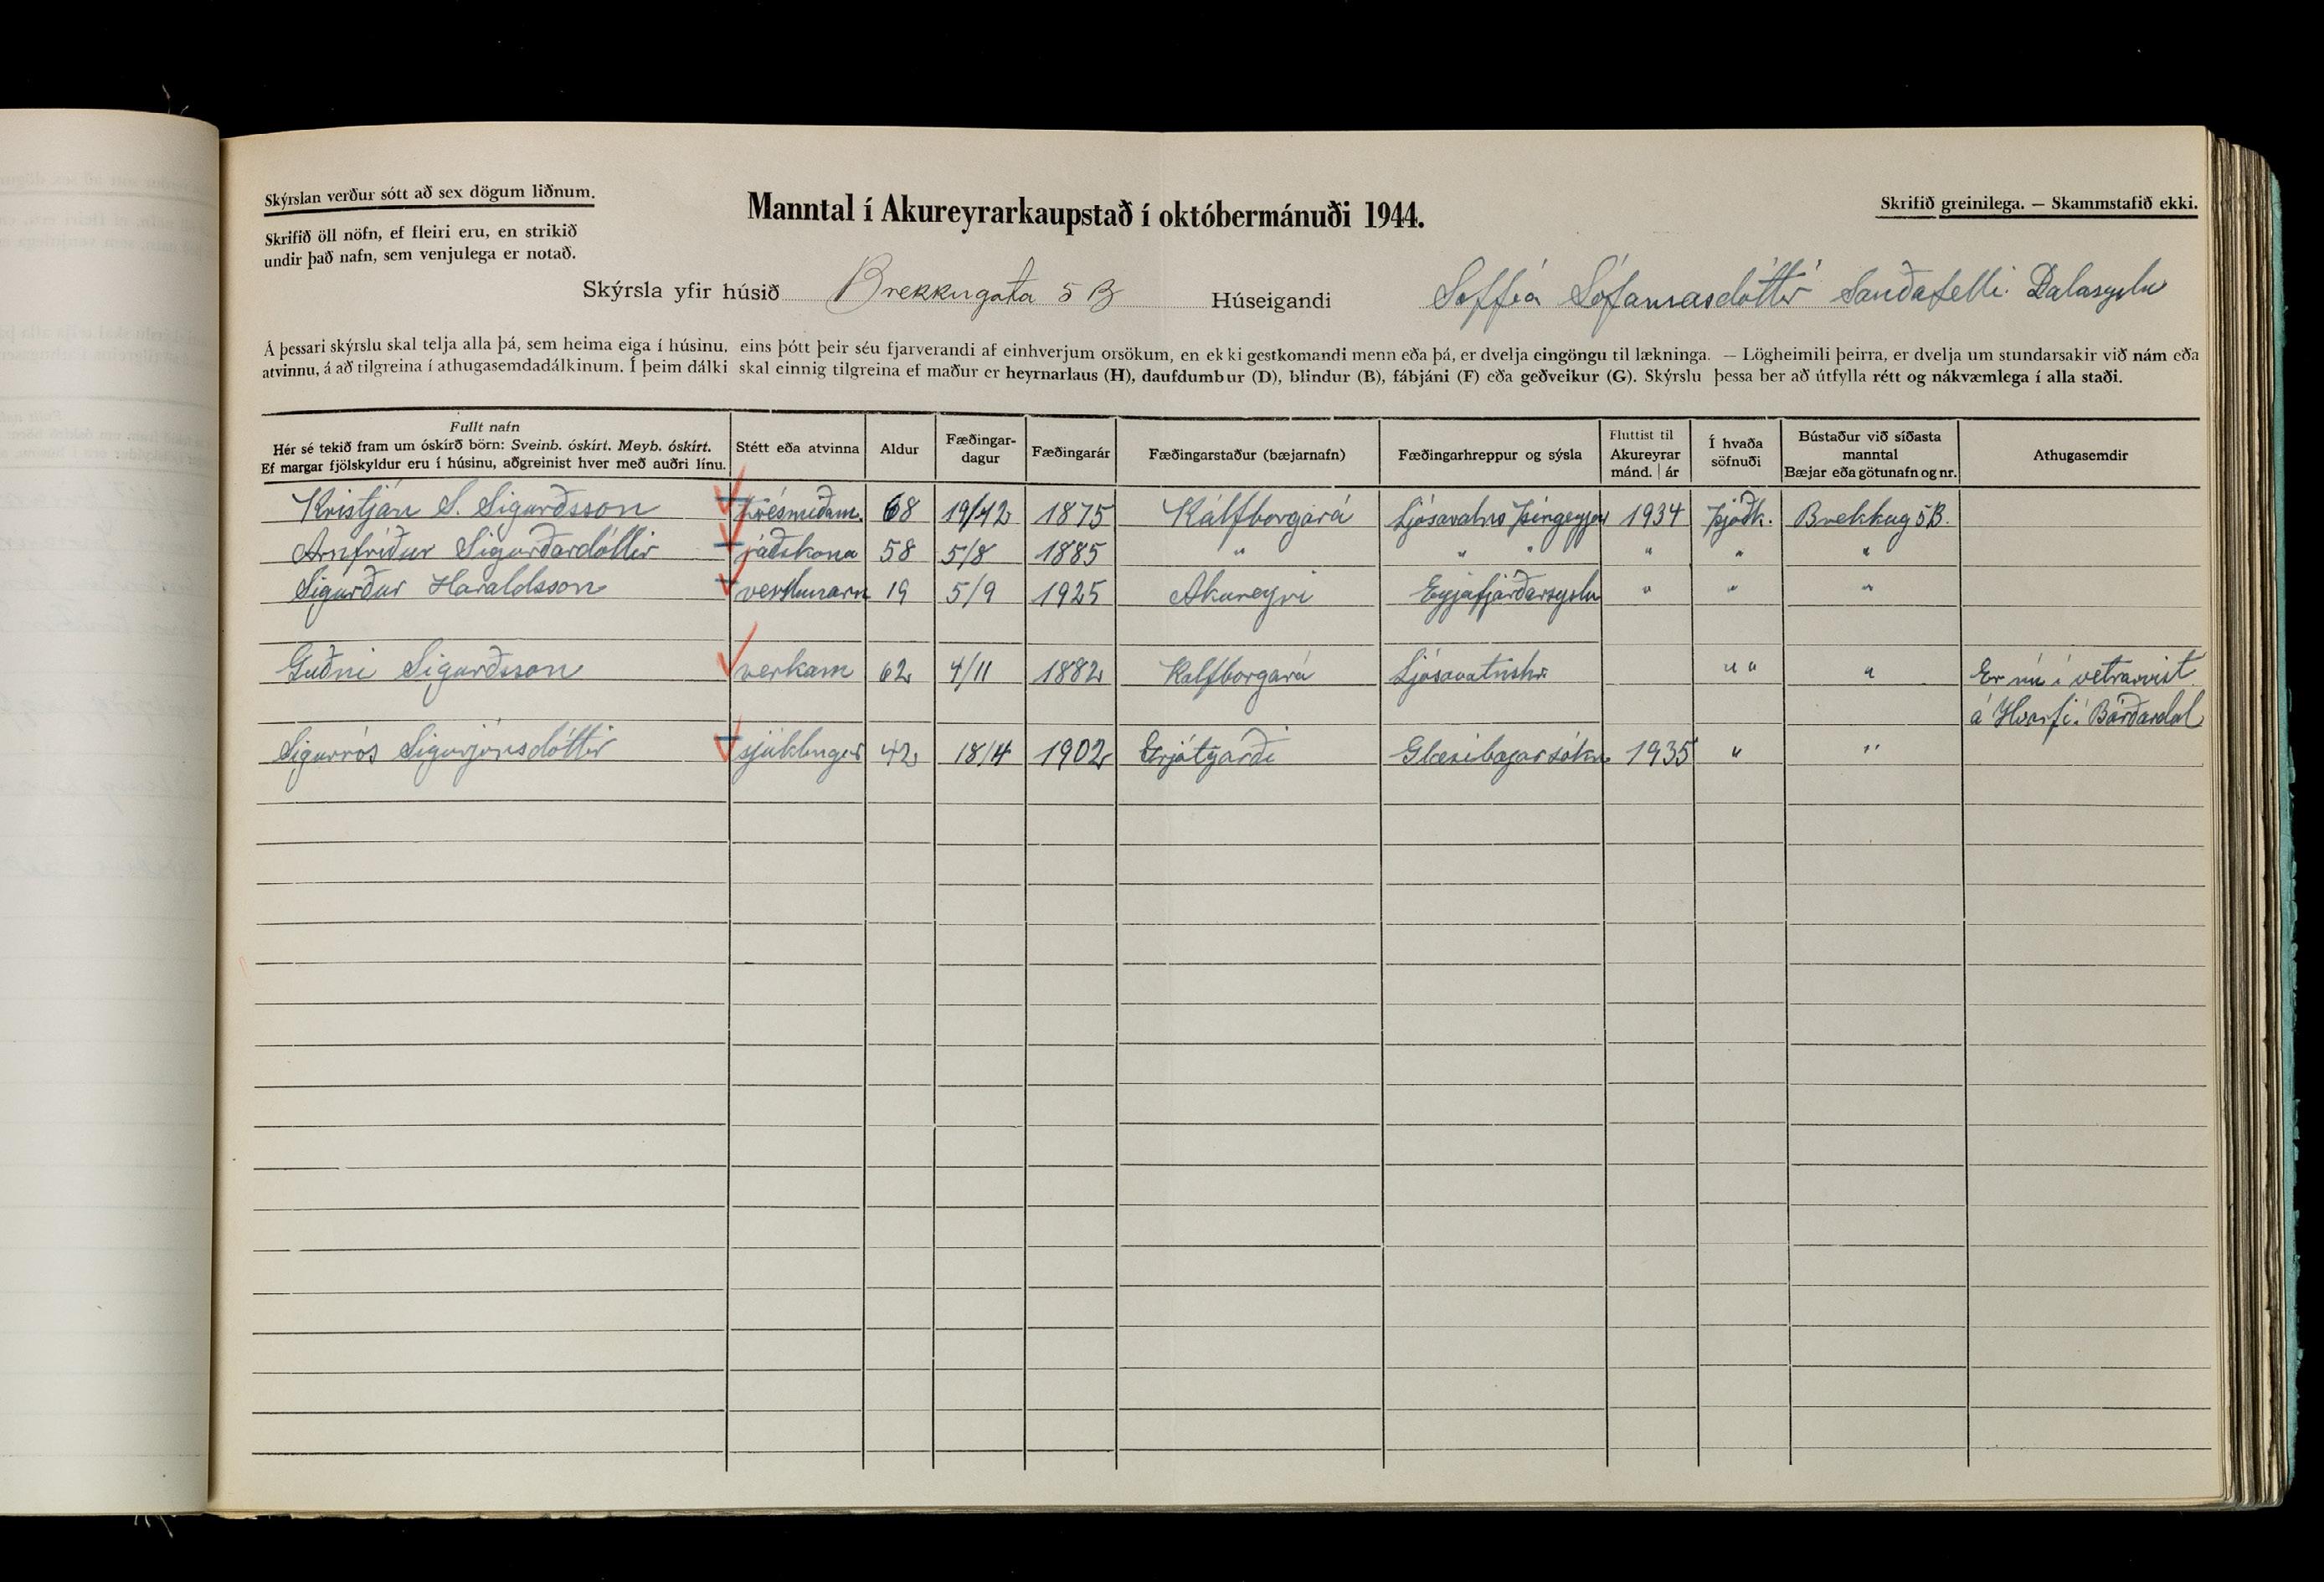 Skýrslan verður sótt að sex dögum liðnum.
Skrifið öll nöfn, ef fleiri eru, en strikið
undir það nafn, sem venjulega er notað.
Manntal í Akureyrarkaupstað í októbermánuði 1944.
Skrifið greinilega. — Skammstafið ekki.
Skýrsla yfir húsið Brekkugata 5 B Húseigandi Soffía Sófaníasdóttir Sauðafelli Dalasýslu
Á þessari skýrslu skal telja alla þá, sem heima eiga í húsinu, eins þótt þeir séu fjarverandi af einhverjum orsökum, en ekki gestkomandi menn eða þá, er dvelja eingöngu til lækninga. — Lögheimili þeirra, er dvelja um stundarsakir við nám eða
atvinnu, á að tilgreina í athugasemdadálkinum. Í þeim dálki skal einnig tilgreina ef maður er heyrnarlaus (H), daufdumbur (D), blindur (B), fábjáni (F) eða geðveikur (G). Skýrslu þessa ber að útfylla rétt og nákvæmlega í alla staði.
Fullt nafn
Hér sé tekið fram um óskírð börn: Sveinb. óskírt. Meyb. óskírt.
Ef margar fjölskyldur eru í húsinu, aðgreinist hver með auðri línu.
Stétt eða atvinna
Aldur
Fæðingar-
dagur
Fæðingarár
Fæðingarstaður (bæjarnafn)
Fæðingarhreppur og sýsla
Fluttist til
Akureyrar
mánd. | ár
Í hvaða
söfnuði
Bústaður við síðasta
manntal
Bæjar eða götunafn og nr.
Athugasemdir
Kristján S. Sigurðsson trésmíðam. 68 19/12 1875 Kálfborgará Ljósavatns Þingeyjar 1934 Þjóðk. Brekkug 5B.
Arnfríður Sigurðardóttir ráðskona 58 5/8 1885 " " " " " "
Sigurður Haraldsson verslunarm 19 5/9 1925 Akureyri Eyjafjarðarsýslu " " "
Guðni Sigurðsson verkam 62 4/11 1882 Kalfborgará Ljósavatnshr " " " Er nú í vetrarvist
á Hvarfi í Bárðardal
Sigurrós Sigurjónsdóttir sjúklingur 42 18/4 1902 Grjótgarði Glæsibæjarsókn 1935 " "